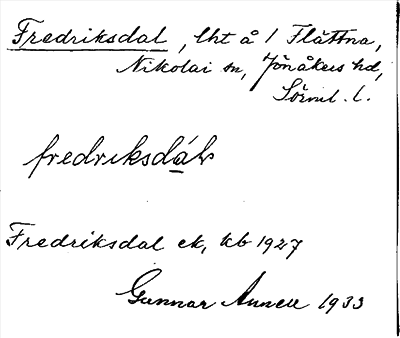 Fredriksdal, lht å / Flättna,
Nikolai sn, Jönåkers hd,
Sörml. l.
fredriksdáls
Fredriksdal ek, kb 1927
Gunnar Annell 1933